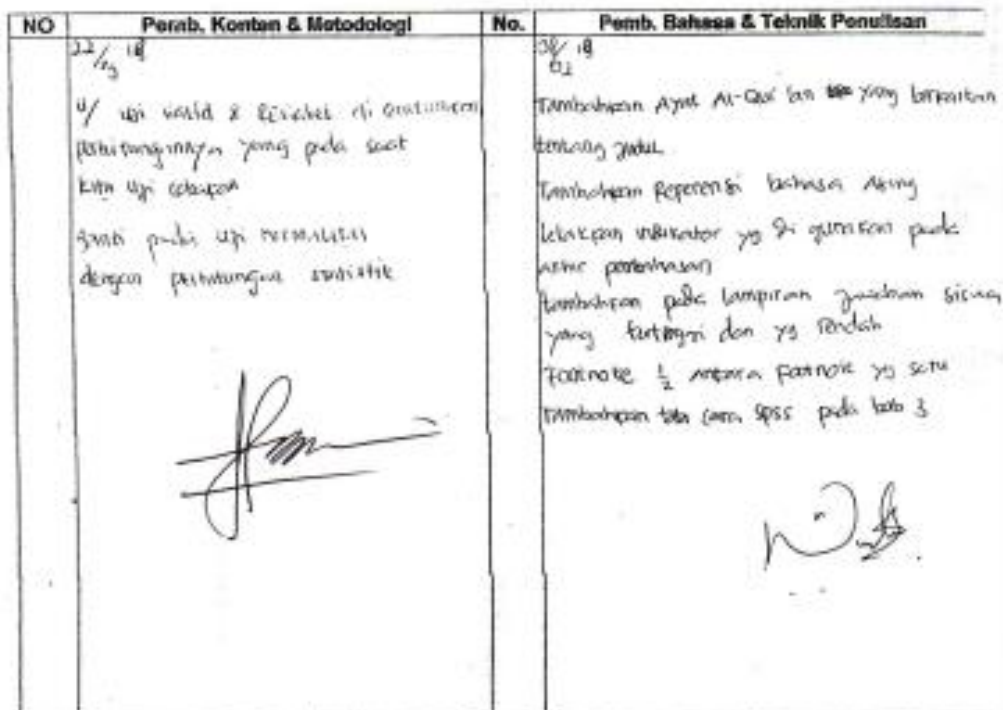 NO
Pemb. Konten & Metodologi
No.
Pemb. Bahasa & Teknik Penulisan
22/ 18
u/ uji valid & di
perhitungannya yang pada saat
kita uji cobakan
ganti pada uji normalitas
dengan perhitungan statistik
18
Tambahkan Ayat Al-Qur'an yang berkaitan
tentang judul
Tambahkan Referensi bahasa Asing
Letakkan indikator yg di gunakan pada
akhir pembahasan
tambahkan pada lampiran jawaban siswa
yang tertinggi dan yg rendah
Footnote 1/2 antara footnote yg satu
Tambahkan tata cara SPSS pada bab 3